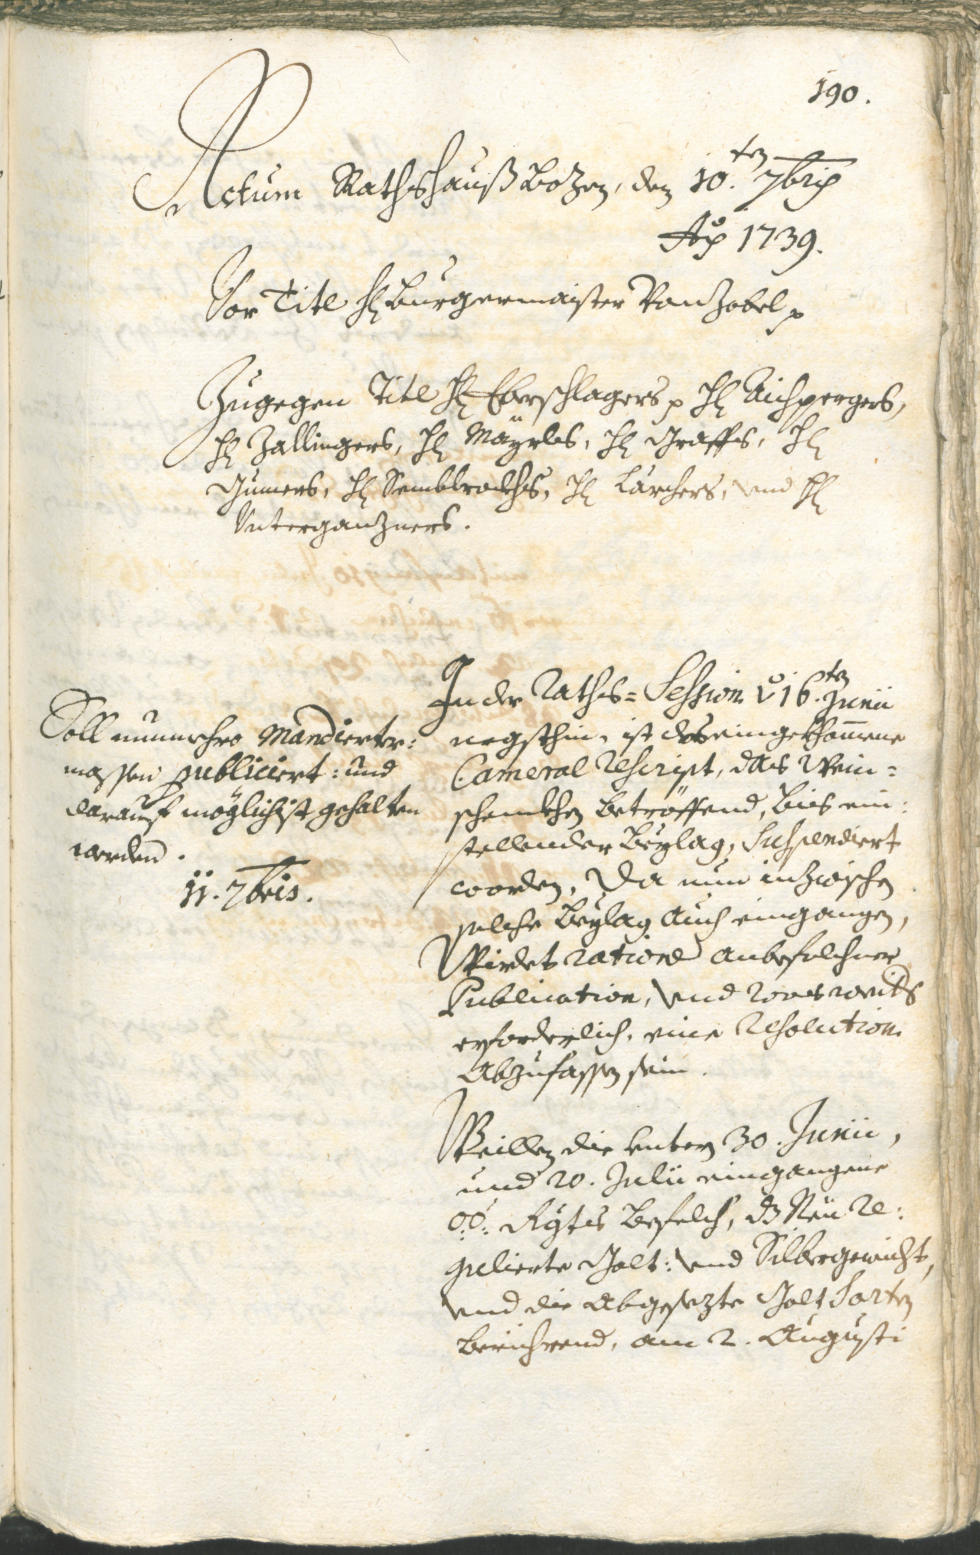 190.
Actum Rathshauß Bozen, den 10.ten 7bris
Ao 1739.
Vor Titl H. Burgermaister Von Zobel p
Zugegen Titl H. Eberschlagers p H. Aichpergers,
H. Zallingers, H. Mäyrls, H. Graffs, H.
Gumers, H. Sembbrockhs, H. Larchers, und H.
Unterganzners.
Soll nunmehro Mandierter:
massen publiciert: und
darauf möglichist gehalten
werden.
11. 7bris.
In der Raths= Session v 16.ten Junii
negsthin, ist das eingekhommene
Cameral Rescript, das Wein=
schenkhen betröffend, bis ein:
stellender Beylag, Suspendiert
worden, Da nun inzwischen
solche Beylag auch eingangen,
Wirdet ratione anbefolchner
Publication, und was weiters
erforderlich, eine Resolution
abzufassen sein.
Weillen die untern 30. Junii,
und 20. Julii eingangene
oö: Rggts Befelch, dz Neu Re:
gulierte Golt: und Silbergewicht,
und die abgesezte Golt Sorten
berührend, am 2. Augusti